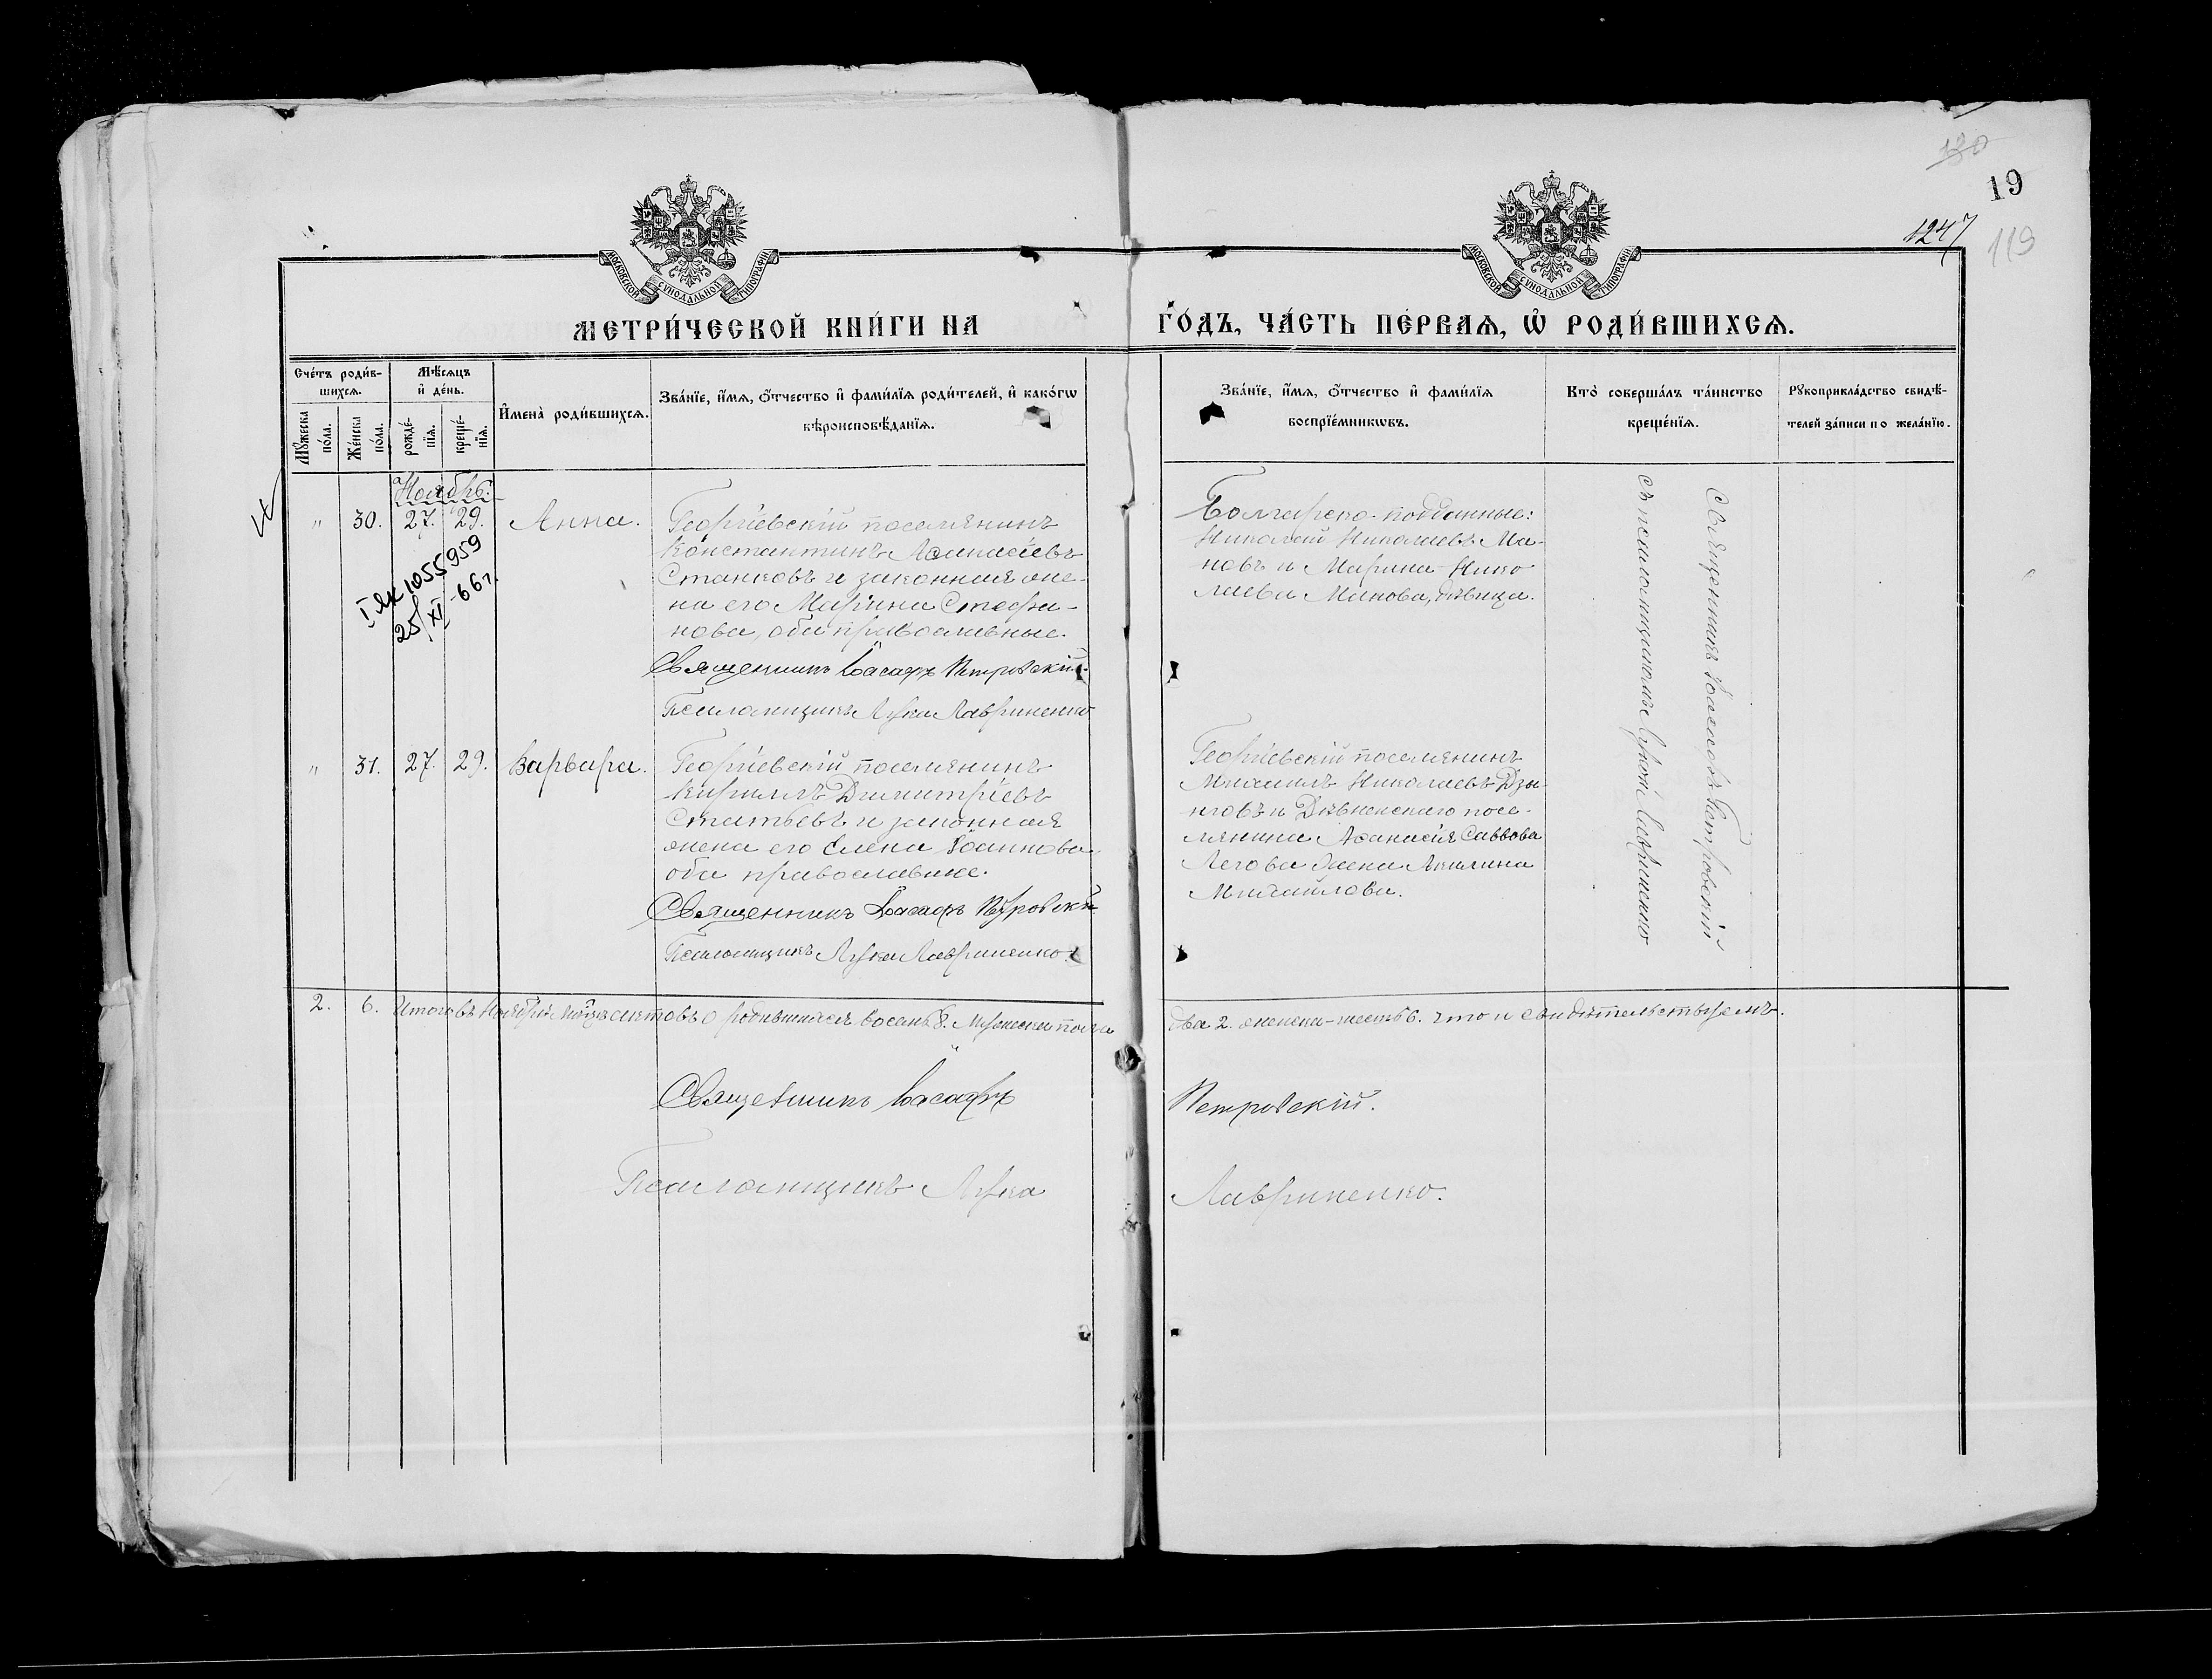 130
19
1247
119
МОСКОВСКОЙ СѴНОДАЛЬНОЙ ТИПОГРАФІИ
МОСКОВСКОЙ СѴНОДАЛЬНОЙ ТИПОГРАФІИ
МЕТРИ́ЧЕСКОЙ КНИ́ГИ НА
ГО́ДЪ, ЧА́СТЬ ПЕ́РВАѦ, Ѽ РОДИ́ВШИХСѦ.
Сче́тъ роди́в-
шихсѧ.
Мꙋ́жеска
по́ла.
Же́нска
по́ла.
Мѣ́сѧцъ
и҆ де́нь.
рожде́-
нїѧ.
креще́-
нїѧ.
И҆мена̀ роди́вшихсѧ.
Зва́нїе, и҆́мѧ, ѻ҆́тчество и҆ фами́лїѧ роди́телей, и҆ како́гѡ
вѣроисповѣ́данїѧ.
Зва́нїе, и҆́мѧ, ѻ҆́тчество и҆ фами́лїѧ
воспрїе́мникѡвъ.
Кто̀ соверша́лъ та́инство
креще́нїѧ.
Рꙋкоприкла́дство свидѣ́-
телей за́писи по жела́нїю.
Ноябрь.
" 30. 27. 29. Анна.
Георгіевскій поселянинъ
Константинъ Аѳанасіевъ
Станковъ и законная же-
на его Марина Стефа-
нова, оба православные.
Священникъ Іоасафъ Петровскій.
Псаломщикъ Лука Лавриненко
I ЯК 1055959
25/XI-66г.
Болгарско-подданные:
Николай Николаевъ Ма-
новъ и Марина Нико
лаева Манова, дѣвица.
Священникъ Іоасафъ Петровскій
съ псаломщикомъ Лукой Лавриненко
" 31. 27. 29. Варвара.
Георгіевскій поселянинъ
Кириллъ Димитріевъ
Статьевъ и законная
жена его Елена Іоаннова
оба православные.
Священникъ Іоасафъ Петровскій
Псаломщикъ Лука Лавриненко.
Георгіевскій поселянинъ
Михаилъ Николаевъ Дзы-
новъ и Дѣвненскаго посе-
лянина Аѳанасія Саввова
Легова жена Акилина
Михайлова.
2. 6. Итого въ Ноябрѣ м-цѣ актовъ о родившихся восемь 8. Мужеска пола
два 2. женска-шесть 6. что и свидѣтельствуемъ.
Священникъ Іоасафъ
Петровскій.
Псаломщикъ Лука
Лавриненко.